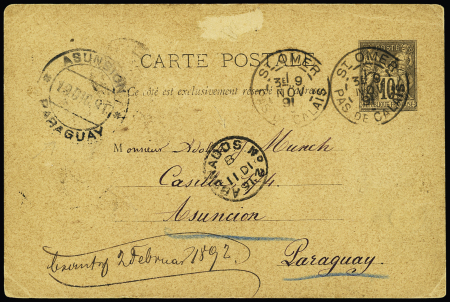 CARTE POSTALE
Ce côté est exclusivement réservé à l'adresse.
ASUNCION
PARAGUAY
ST OMER
3E 9
NOV
91
PAS DE CALAIS
ST OMER
3E
NOV
PAS DE CALAIS
10
Monsieur Adolf Munch
Casilla
Asuncion
Paraguay
2 Februar 1892.